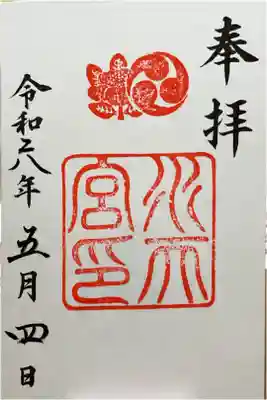 奉拝
水天宮印
令和六年五月四日